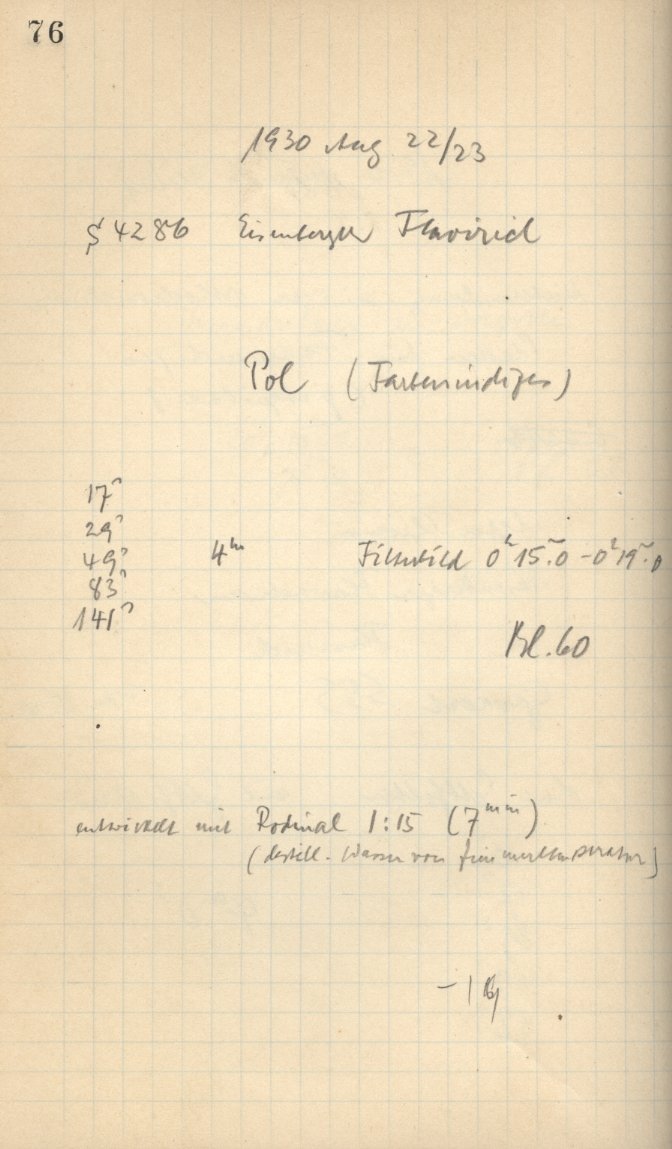 76
1930 Aug 22/23
S 4286 Eisenberger Flavirid
Pol (Farbenindizes)
17ˢ
29ˢ
49ˢ 4ᵐ Filterbild 0ʰ15ᵐ.0 - 0ʰ19ᵐ.0
83ˢ
141ˢ
Bl. 60
entwickelt mit Rodinal 1:15 (7ᵐⁱⁿ)
(destill. Wasser von Zimmertemperatur)